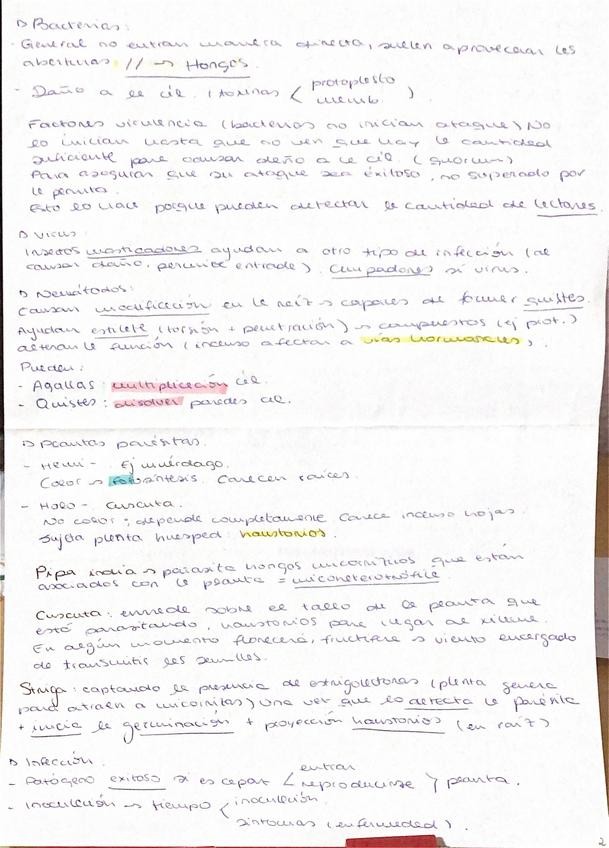 ▷ Bacterias:
· General no entran manera directa, suelen aprovechar les
aberturas // → Hongos
- Daño a le cél. (toxinas < protoplasto
membr )
Factores virulencia (bacterias no inician ataque) No
lo inician hasta que no ven que hay le cantidad
suficiente para causar daño a le cél. (quorum)
Para asegurar que su ataque sea éxitoso, no superado por
le planta.
Esto lo hace porque pueden detectar le cantidad de lectores.
▷ Virus:
Insectos masticadores ayudan a otro tipo de infección (al
causar daño, permite entrada). Chupadores si virus.
▷ Nemátodos:
Causan modificación en le raíz → capaces de formar quistes.
Ayudan estilete (torsión + penetración) → compuestos (ej prot.)
alteran le función (incluso afectan a vías hormonales).
Pueden:
- Agallas: multiplicación cél.
- Quistes: disolver paredes cél.
▷ Plantas parásitas.
- Hemi- Ej muérdago.
Color → fotosíntesis. Carecen raíces.
- Holo- Cuscuta.
No color: depende completamente carece incluso hojas.
Sujeta planta huesped: haustorios.
Pipa india → parasita hongos micorríticos que están
asociados con le planta = micoheterotrófite
Cuscuta: enrede sobre el tallo de le planta que
está parasitando, haustorios para llegar al xilema.
En algún momento florecerá, fructifere → viento encargado
de transmitir les semilles.
Striga: captando le presencia de estrigolectonas (planta genera
para atraen a micorritas) Una vez que lo detecta le parásita
+ inicia le germinación + proyección haustorios (en raíz)
▷ Infección.
- Patógeno exitoso si es capaz < entrar
reproducirse > planta.
- Inoculación → tiempo < inoculación
síntomas (enfermedad).
2